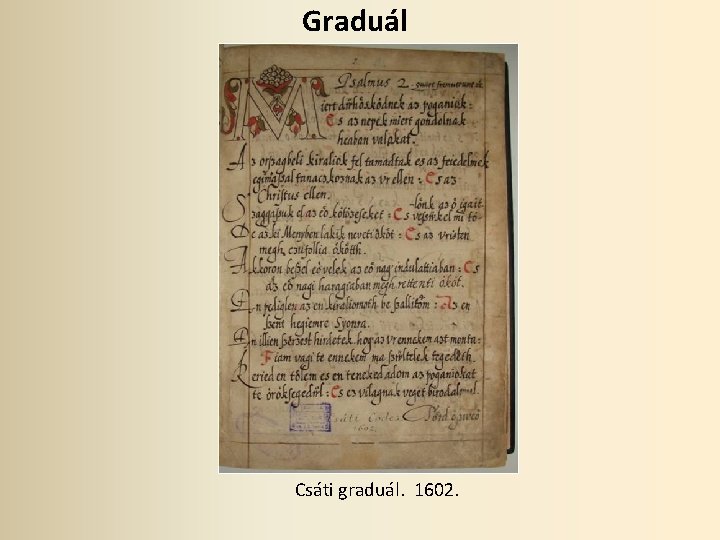 Graduál
Psalmus 2
Miert dühösködnek az poganiük:
Es az nepek miert gondolnak
heaban valakat.
Az orszagbeli kiraliok fel tamadtak es az feiedelmek
egimassal tanaczkoznak az Ur ellen: Es az
Christus ellen.
Szaggassuk el az eö kötözeseket: Es vessükel mi tö-
lönk az ö igait
De az ki Menyben lakik neveti ököt: Es az Uristen
megh czufollia ökötth.
Akkoron beszel eö velek az eö nag indulattiaban: Es
az eö nagi haraggiaban megh rettenti ököt.
En pediglen az en kiraliomoth be szallitom: Az en
szent hegiemre Syonra.
En illien szerzest hirdetek hog az Ur ennekem azt monta:
Fiam vagi te ennekem ma szültelek tegedeth
Keried en tölem es en teneked adom az poganiokat
te örökseged ül: Es ez vilagnak veget birodalmul.
Csáti Codex
1602.
Csáti graduál. 1602.